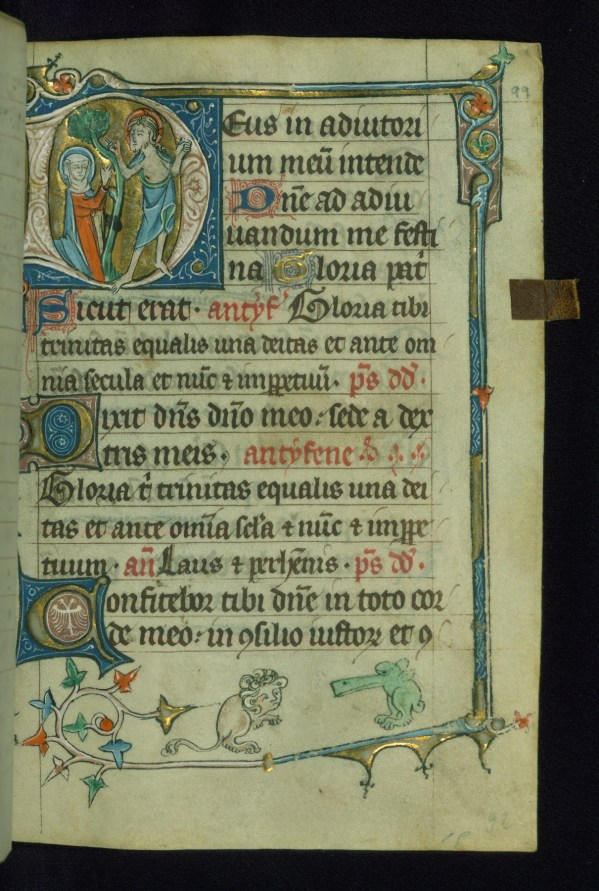 99
Deus in adiutori
um meū intende
Dn̄e ad adiu
uandum me festi
na Gloria pat̄
Sicut erat · antyf̄ Gloria tibi
trinitas equalis una deitas et ante om
nia secula et nūc ⁊ imppetuū · p̄s dd̄ ·
Dixit dn̄s dn̄o meo : sede a dex
tris meis · antyfene
Gloria t̄ trinitas equalis una dei
tas et ante om̄ia sel̄a ⁊ nūc ⁊ imppe
tuum · an̄ Laus ⁊ perhēnis · p̄s dd̄ ·
Confitebor tibi dn̄e in toto cor
de meo : in ꝯsilio iustoꝝ et ꝯ